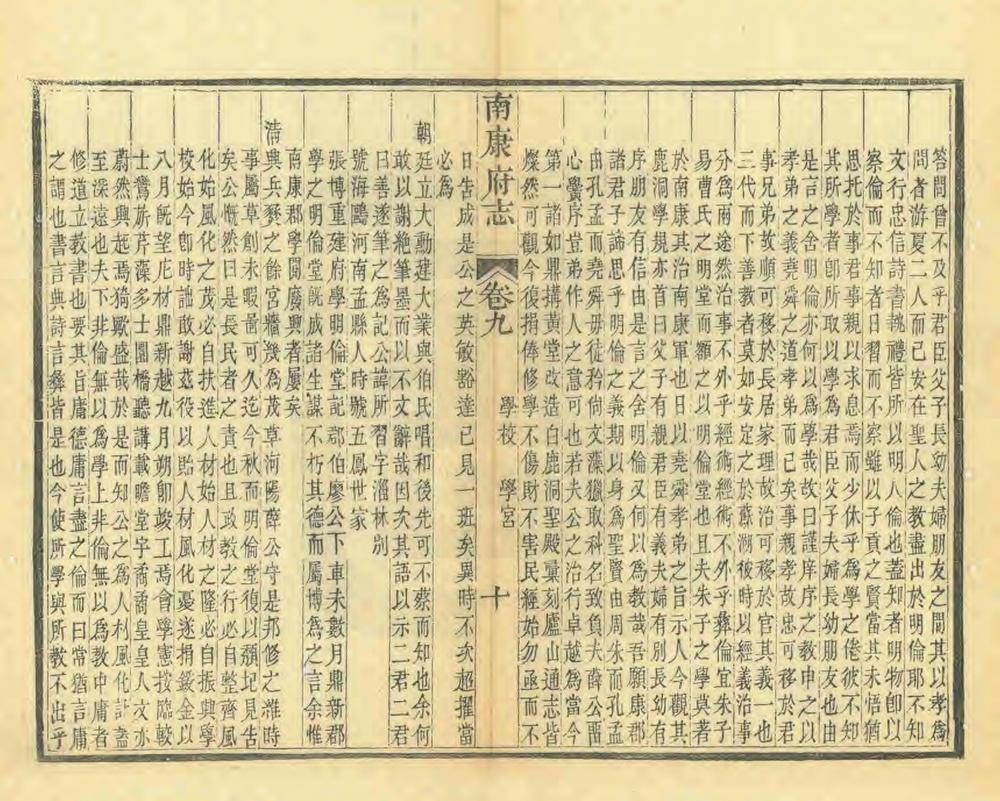 答問曾不及乎君臣父子長幼夫婦朋友之間其以孝為
問者游夏二人而已安在聖人之教盡出於明倫耶不知
文行忠信詩書執禮皆所以明人倫也蓋知者明物卽以
察倫而不知者日習而不察雖以子貢之賢當其未悟猶
思托於事君事親以求息焉而少休乎為學之倦彼不知
其所學者卽所取以學為君臣父子夫婦長幼朋友也由
是言之舍明倫亦何以為學哉故曰謹庠序之教申之以
孝弟之義堯舜之道孝弟而已矣事親孝故忠可移於君
事兄弟故順可移於長居家理故治可移於官其義一也
三代而下善教者莫如安定之於蘇湖彼時以經義治事
分為兩途然治事不外乎經術經術不外乎彝倫宜朱子
易曹氏之明堂而額之以明倫堂也且夫朱子之學莫著
於南康其治南康軍也日以堯舜孝弟之旨示人今觀其
鹿洞學規亦首曰父子有親君臣有義夫婦有別長幼有
序朋友有信由是言之舍明倫又何以為教哉吾願康郡
諸君子諦思乎明倫之義期以身為聖賢由周朱而孔孟
由孔孟而堯舜毋徒矜尚文藻獵取科名致負夫薛公晋
心黌序豈弟作人之意可也若夫公之治行卓越為當今
第一諸如鼎搆黃堂改造白鹿洞聖殿彙刻廬山通志皆
燦然可觀今復捐俸修學不傷財不害民經始勿亟而不
南康府志
卷九
學校 學宮
十
日告成是公之英敏豁達已見一班矣異時不次超擢當
必為
朝廷立大勳建大業與伯氏唱和後先可不蔡而知也余何
敢以謝絶筆墨而以不文辭哉因次其語以示二君二君
曰善遂筆之為記公諱所習字淄林別
號海鷗河南鄢縣人時號五鳳世家
張博重建府學明倫堂記郡伯廖公下車未數月鼎新郡
學之明倫堂旣成諸生謀不朽其德而屬博為之言余惟
南康郡學閎廣輿者屢矣
清興兵燹之餘宮牆㡬為茂草河陽薛公守是邦修之維時
事屬草創未暇量可久迄今秋而明倫堂復以頹圮見告
矣公慨然曰是長民者之責也且政教之行必自整齊風
化始風化之茂必自扶進人材始人材之隆必自振興學
校始今卽時詘敢謝茲役以貽人材風化憂遂捐鍰金以
八月旣望庀材鼎新越九月朔卽竣工焉會學憲按臨較
士士鷟旂芹藻多士圜橋聽講載瞻堂宇矞矞皇皇人文亦
蔚然興起焉猗歟盛哉於是而知公之為人材風化計蓋
至深遠也夫下非倫無以為學上非倫無以為教中庸者
修道立教書也要其旨庸德庸言盡之倫而曰常猶言庸
之謂也書言典詩言彝皆是也今使所學與所教不出乎